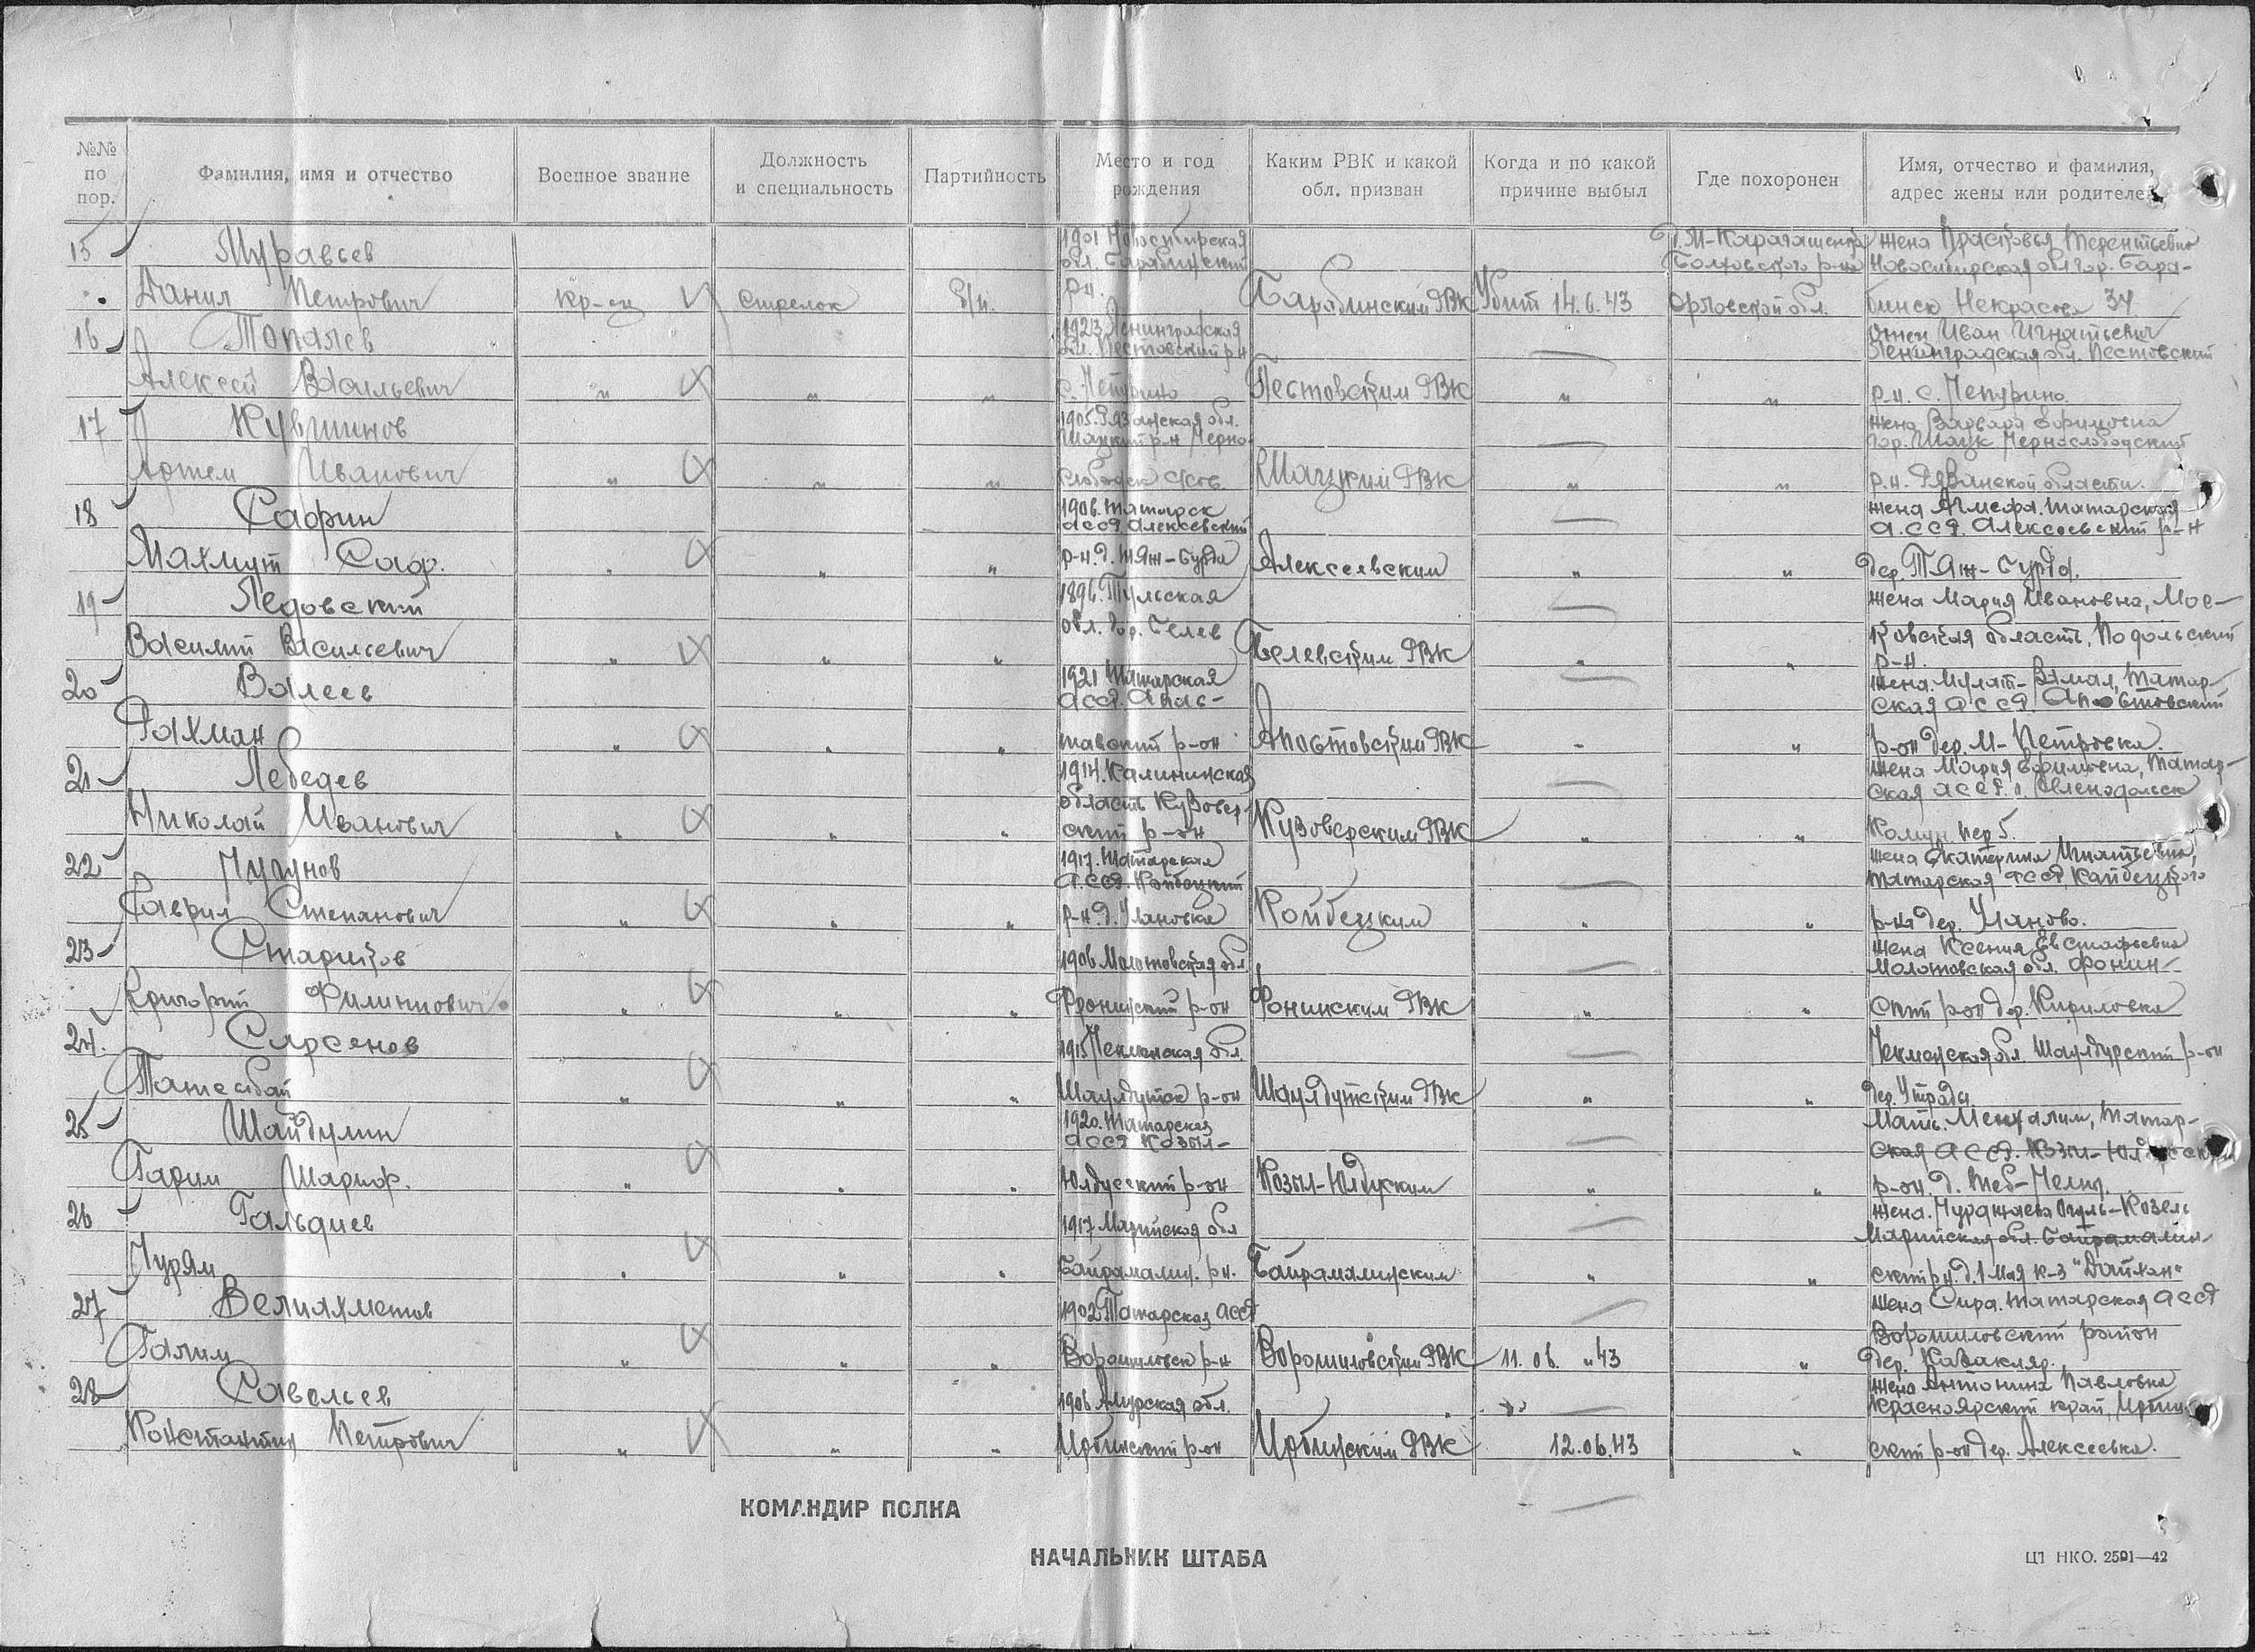 №№ по пор.
Фамилия, имя и отчество
Военное звание
Должность и специальность
Партийность
Место и год рождения
Каким РВК и какой обл. призван
Когда и по какой причине выбыл
Где похоронен
Имя, отчество и фамилия, адрес жены или родителей
15 Муравьев
Данил Петрович
Кр-ец
Стрелок
б/п.
1901 Новосибирская
обл. Барабинский
р-н.
Барабинским РВК
Убит 14.6.43
Болховского р-на
Орловской обл.
жена Прасковья Терентьевна
Новосибирская обл гор. Бара-
бинск Некрасова 34
16 Топалев
Алексей Васильевич
" " "
1923 Ленинградская
обл. Пестовский р-н
Пестовским РВК
" "
отец Иван Игнатьевич
Ленинградская обл. Пестовский
р-н. с. Чепурино
17 Кувшинов
Артем Иванович
" " "
1905. Рязанская обл.
Шацкий р-н Черно-
Шацким РВК
" "
жена Варвара Ефимовна
гор. Шацк Чернослободский
р.н. Рязанской области.
18 Сафин
Махмут Саф.
" " "
1906. Татарск
АССР. Алексеевский
р-н. д. Тяж-Бурда
Алексеевским
" "
жена Татарская
А.ССР. Алексеевский р-н
дер.
19 Ледовский
Василий Васильевич
" " "
1896. Тульская
обл. гор. Белев
Белевским РВК
" "
жена Мария Ивановна, Мос-
ковская область, Подольский
р-н.
20 Валеев
Рахман
" " "
1921 Татарская
АССР. Апас-
товский р-он
Апостовским РВК
" "
Татар-
ская АССР. Апостовский
р-он дер. М-Петровка.
21 Лебедев
Николай Иванович
" " "
1914. Калининская
область Кузовер-
ский р-он
Кузоверским РВК
" "
жена Мария Ефимовна, Татар-
ская АССР. Зеленодольск
Комун. пер 5.
22 Чугунов
Гаврил Степанович
" " "
1917. Татарская
А.ССР. Кайбецкий
р-н. д. Улановка
Койбецким
" "
жена Екатерина Игнатьевна,
Татарская АССР, Кайбецкого
р-на дер. Уланово.
23 Стариков
Григорий Филиппович
" " "
1906 Молотовская обл.
Фронинский р-он
Фонинским РВК
" "
жена Ксения Евстафьевна
Молотовская обл. Фонин-
ский р-он дер. Кириловка
24. Сарсенов
" " "
1915
Шаулдутск р-он
Шаулдутским РВК
" "
Шаулдурский р-он
дер.
25 Шайдулин
Гарим Шариф.
" " "
1920. Татарская
АССР Козыл-
Юлдусский р-он
Козыл-Юлдуским
" "
Мать. Татар-
ская АССР. Козыл-Юлдусский
р-он. д.
26 Гальдиев
Нурям
" " "
1917. Марийская обл
Байрамалин. р-н.
Байрамалинским
" "
жена.
Марийская обл. Байрамалин-
ский р-н. д. 1 мая к-з "Дайхан"
27 Велиахметов
Галим
" " "
1902 Татарская АССР
Ворошиловск р-н
Ворошиловским РВК
11. 06. " 43
"
жена Сира. Татарская АССР
Ворошиловский район
дер. Казаклар.
28 Савельев
Константин Петрович
" " "
1906 Амурская обл.
Ирбинский р-он
Ирбинским РВК
12.06.43
"
жена Антонина Павловна
Красноярский край, Ирбин-
ский р-он дер. Алексеевка.
КОМАНДИР ПОЛКА
НАЧАЛЬНИК ШТАБА
ЦТ НКО. 2591—42